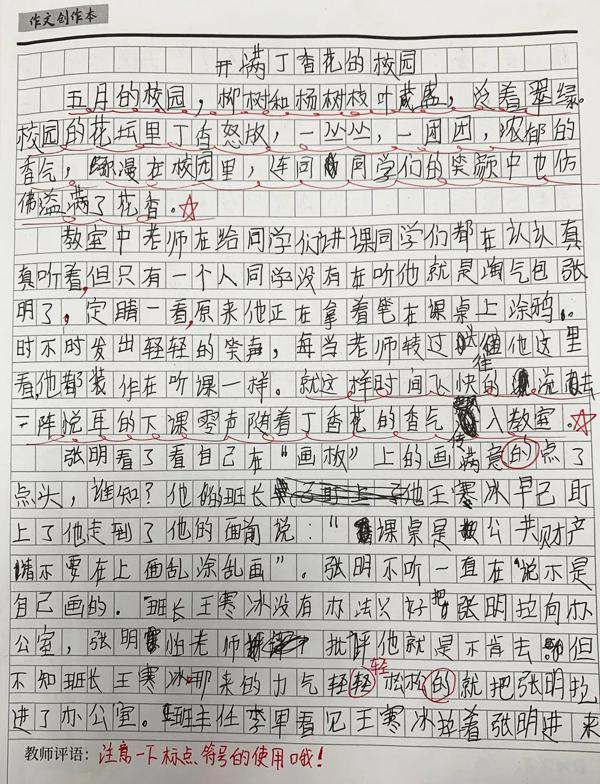 作文创作本
开满丁香花的校园
五月的校园，柳树和杨树枝叶茂盛，泛着翠绿。
校园的花坛里丁香怒放，一丛丛，一团团，浓郁的
香气，弥漫在校园里，连同同学们的笑颜中也仿
佛溢满了花香。
教室中老师在给同学们讲课同学们都在认认真
真听着，但只有一个人同学没有在听他就是淘气包张
明了，定睛一看，原来他正在拿着笔在课桌上涂鸦，
时不时发出轻轻的笑声，每当老师转过往他这里
看，他都装作在听课一样。就这样时间飞快的流去
一阵悦耳的下课零声随着丁香花的香气传入教室。
张明看了看自己在"画板"上的画满意的点了
点头，谁知？他的班长王寒冰早己盯
上了他走到了他的面前说："课桌是公共财产
请不要在上画乱涂乱画"。张明不听一直在说不是
自己画的．班长王寒冰没有办法只好把张明拉向办
公室，张明怕老师批评他就是不肯去．但
不知班长王寒冰那来的力气轻轻松松的就把张明拉
进了办公室。班主任李军看见王寒冰拉着张明进来
教师评语：注意一下标点符号的使用哦！